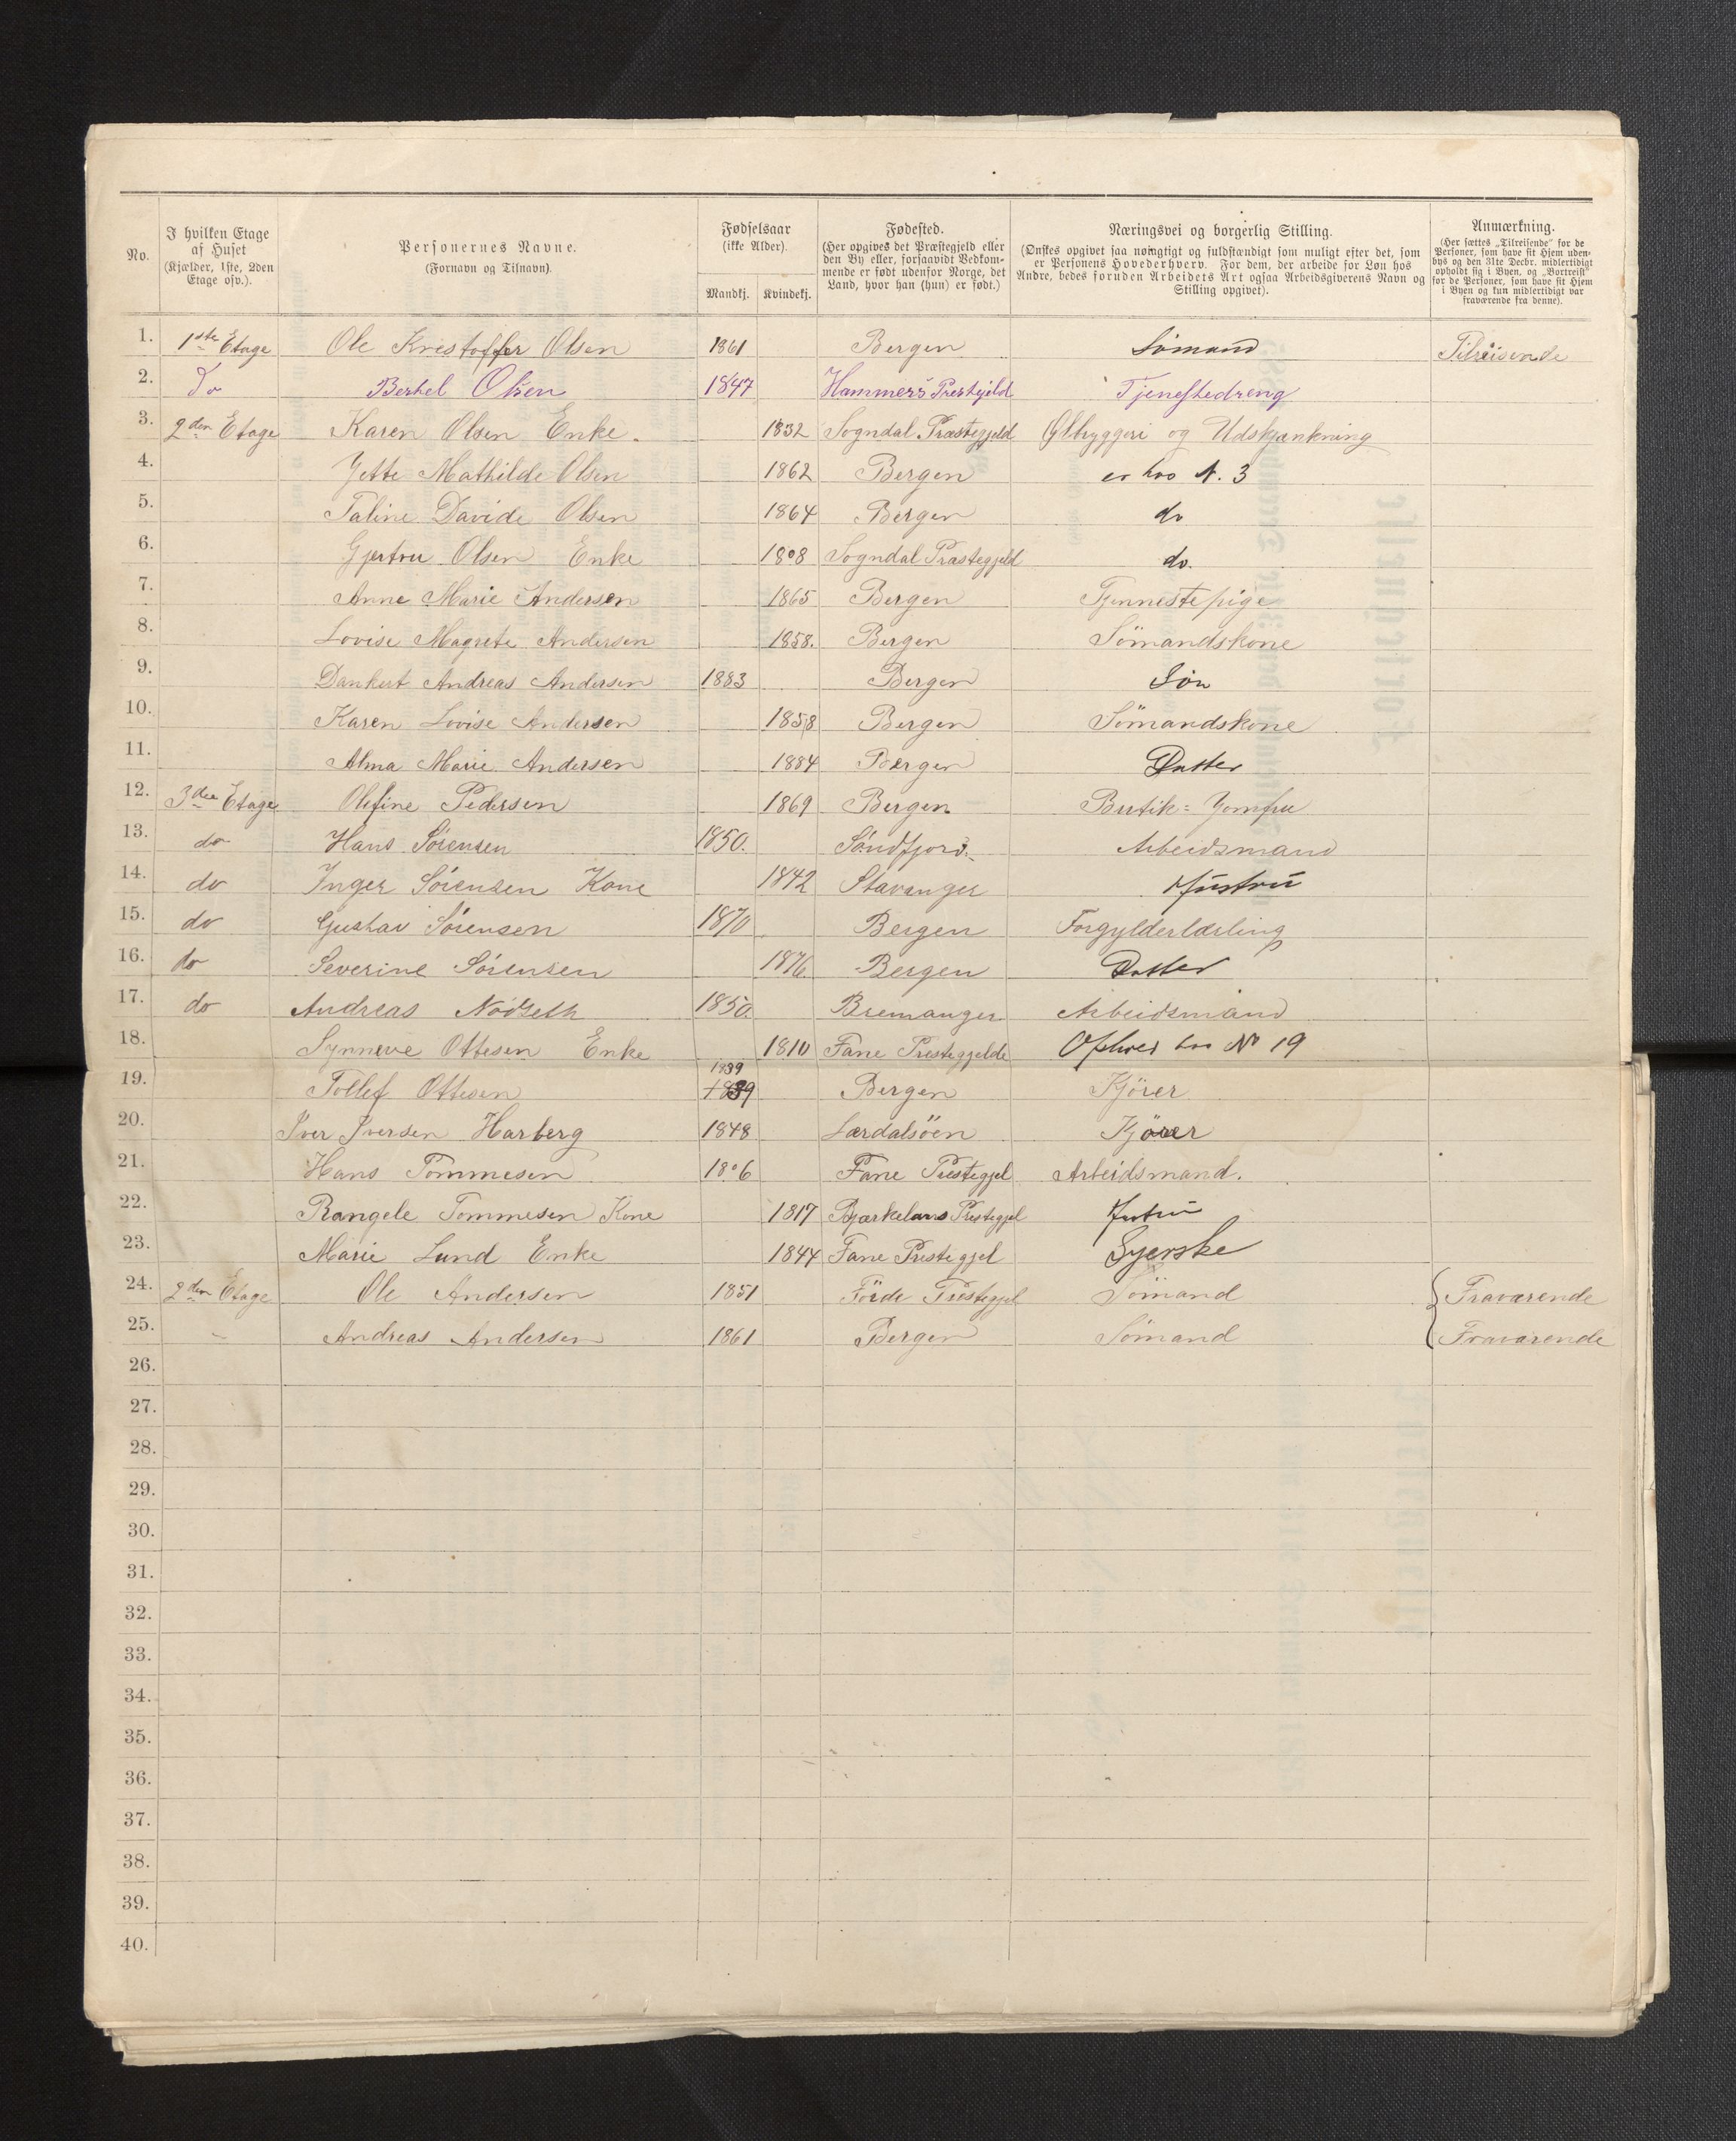 No.
I hvilken Etage af Huset (Kjælder, 1ste, 2den Etage osv.).
Personernes Navne. (Fornavn og Tilnavn).
Fødselsaar (ikke Alder).
Mandkj. Kvindekj.
Fødested. (Her opgives det Præstegjeld eller den By eller, forsaavidt Vedkommende er født udenfor Norge, det Land, hvor han (hun) er født.)
Næringsvei og borgerlig Stilling. (Ønskes opgivet saa nøiagtigt og fuldstændigt som muligt efter det, som er Personens Hovederhverv. For dem, der arbeide for Løn hos Andre, bedes foruden Arbeidets Art ogsaa Arbeidsgiverens Navn og Stilling opgivet).
Anmærkning. (Her sættes „Tilreisende" for de Personer, som have sit Hjem udenbys og den 31te Decbr. midlertidigt opholdt sig i Byen, og „Bortreist" for de Personer, som have sit Hjem i Byen og kun midlertidigt var fraværende fra denne).
1. 1ste Etage Ole Kristoffer Olsen 1861 Bergen Sømand Tilreisende
2. Do Berhel Olsen 1847 Hammers Prestejeld Tjenestedreng
3. 2den Etage Karen Olsen Enke. 1832 Sogndal Præstegjeld Ølbryggeri og Udskjænkning
4. Jette Mathilde Olsen 1862 Bergen er hos N. 3
5. Taline Davide Olsen 1864 Bergen do
6. Gjertru Olsen Enke 1808 Sogndal Præstegjeld do.
7. Anne Marie Andersen 1865 Bergen Tjennestepige
8. Lovise Magrete Andersen 1858. Bergen Sömandskone
9. Dankert Andreas Andersen 1883 Bergen Søn
10. Karen Lovise Andersen 1858 Bergen Sömandskone
11. Alma Marie Andersen 1884 Bergen Datter
12. 3die Etage Olefine Pedersen 1869 Bergen Butik=Jomfru
13. do Hans Sørensen 1850. Søndfjord. Arbeidsmand
14. do Inger Sørensen Kone 1842 Stavanger Hustru
15. do Gustav Sørensen 1870 Bergen Forgylderlærling
16. do Severine Sørensen 1876. Bergen Datter
17. do Andreas Nödseth 1850. Bremanger Arbeidsmand
18. Synneve Ottesen Enke 1810 Fane Prestegjelde Ophold hos No 19
1839
19. Tollef Ottesen 1839 Bergen Kjörer
20. Iver Iversen Harberg 1848 Lærdalsöen Kjörer
21. Hans Tommesen 1806 Fane Prestegjel Arbeidsmand.
22. Rangele Tommesen Kone 1817 Prestegjel Hustru
23. Marie Lund Enke 1844 Fane Prestegjel Syerske
24. 2den Etage Ole Andersen 1851 Förde Prestegjel Sömand Fraværende
25. " Andreas Andersen 1861 Bergen Sömand Fraværende
26.
27.
28.
29.
30.
31.
32.
33.
34.
35.
36.
37.
38.
39.
40.